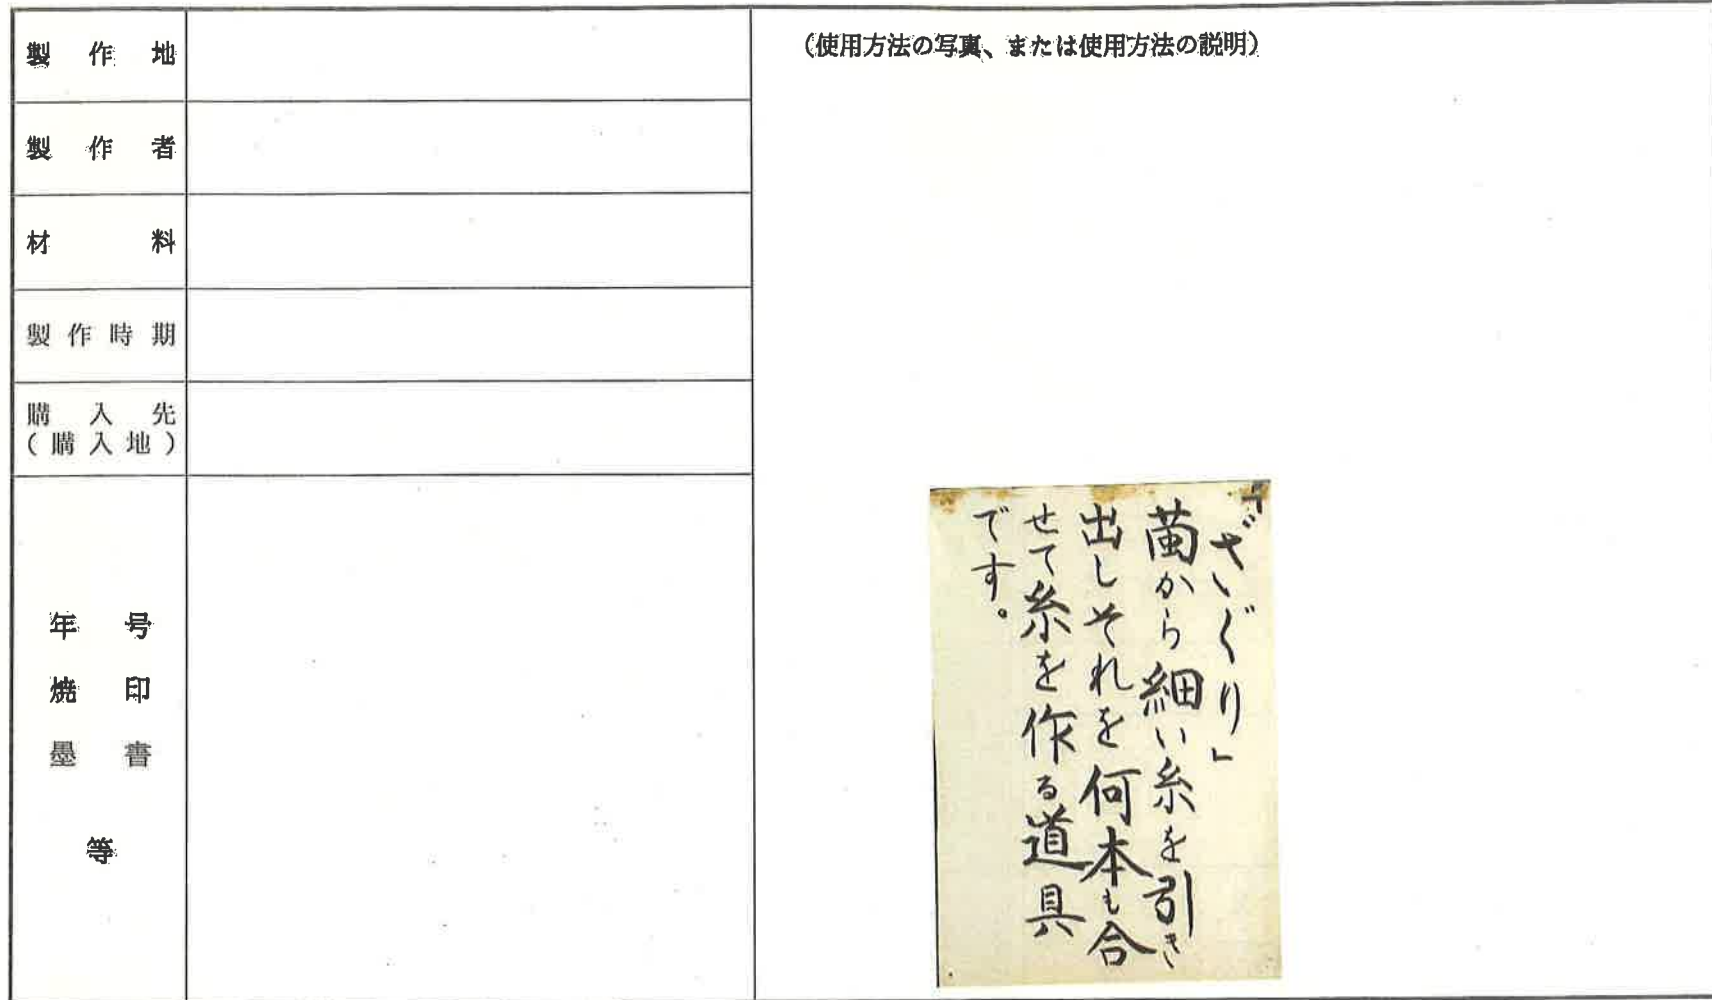 製作地
製作者
材料
製作時期
購入先
(購入地)
年号
焼印
墨書
等
(使用方法の写真、または使用方法の説明)
「ざぐり」
繭から細い糸を引き
出しそれを何本も合
せて糸を作る道具
です。